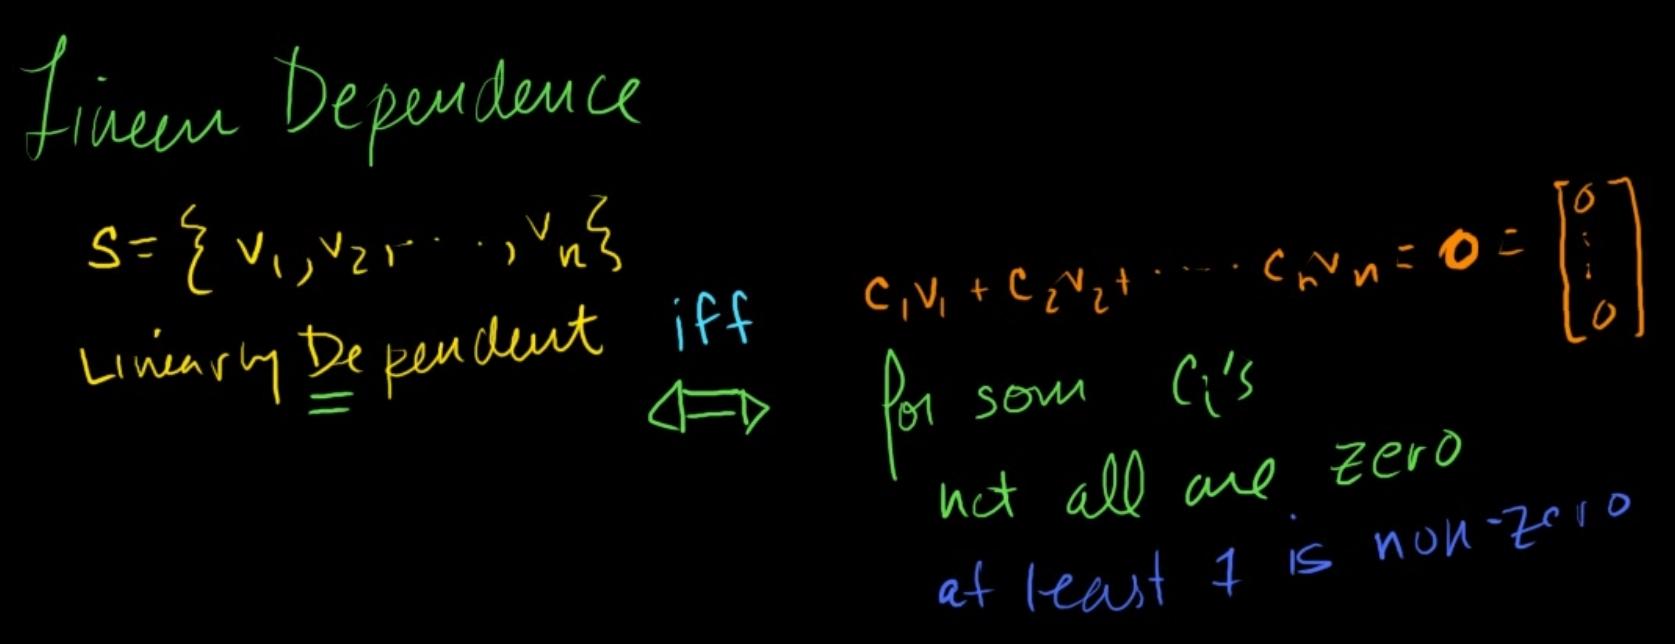 Linear Dependence
S = { v₁, v₂, ..., vₙ }
Linearly Dependent
iff
⇔
c₁v₁ + c₂v₂ + ..... cₙvₙ = 0 = [0 ⋮ 0]
for som cᵢ's
not all are zero
at least 1 is non-zero